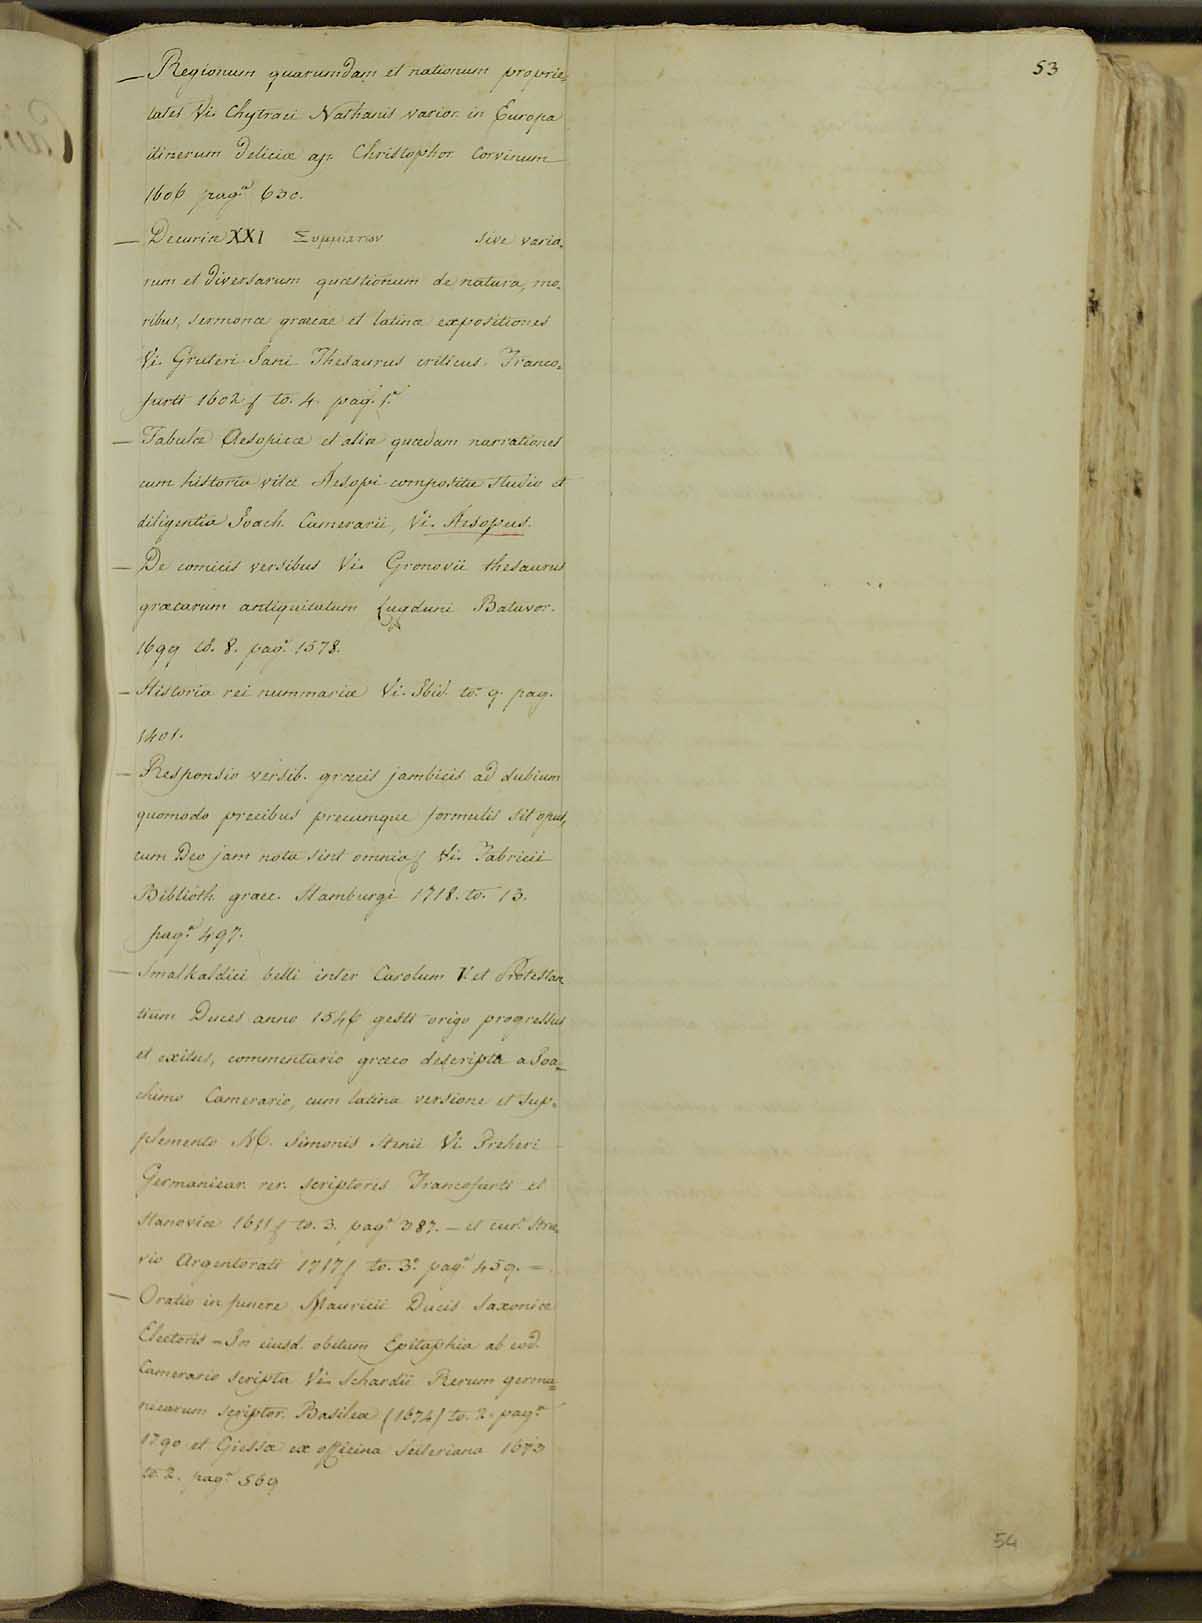 53
— Regionum quarumdam et nationum proprie-
tates Vi. Chytraei Nathanis varior. in Europa
itinerum deliciæ ap. Christophor Corvinum
1606 pag.ª 630.
— Decuriæ XXI Συμμικτων sive vario-
rum et diversarum quæstionum de natura, mo-
ribus, sermone græcæ et latinæ expositiones
Vi. Gruteri Jani Thesaurus criticus. Franco-
furti 1602 f to. 4. pag. 1.ª
— Fabulæ Aesopicæ et aliæ quædam narrationes
cum historia vitæ Aesopi compositæ studio et
diligentia Joach. Camerarii, Vi. Aesopus.
— De comicis versibus Vi. Gronovii thesaurus
græcarum antiquitatum Lugduni Batavor.
1699 to. 8. pag.ª 1578.
— Historia rei nummariæ Vi. Ibid. to. 9. pag.
1401.
— Responsio versib. græcis jambicis ad dubium
quomodo precibus precumque formulis sit opus,
cum Deo jam nota sint omnia f Vi. Fabricii
Biblioth. graec. Hamburgi 1718. to. 13.
pag.ª 497.
— Smalkaldici belli inter Carolum V. et Protestan
tium Duces anno 1546 gesti origo progressus
et exitus, commentario græco descripta a Joa-
chimo Camerario, cum latina versione et sup-
plemento M. Simonis Stenii Vi. Freheri
Germanicar. rer. scriptores Francofurti et
Hanoviæ 1611 f to. 3. pagª 387. — et cur.ª Stru-
vio Argentorati 1717 f to. 3.º pag.ª 459. —
— Oratio in funere Mauricii Ducis Saxoniæ
Electoris — In eiusd. obitum Epitaphia ab eod.
Camerario scripta Vi. Schardii Rerum germa-
nicarum scriptor. Basileæ (1574) to. 2. pag.ª
1790 et Giessæ ex officina Seileriana 1673
to. 2. pag.ª 569
54